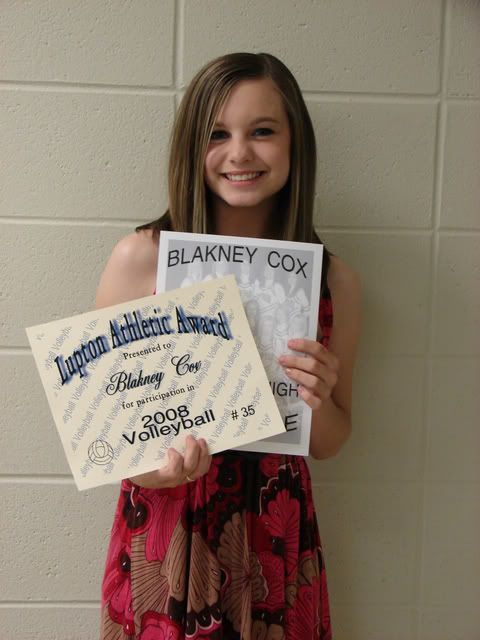 BLAKNEY COX
IGH
E
Lupton Athletic Award
Presented to
Blakney Cox
for participation in
2008
Volleyball # 35